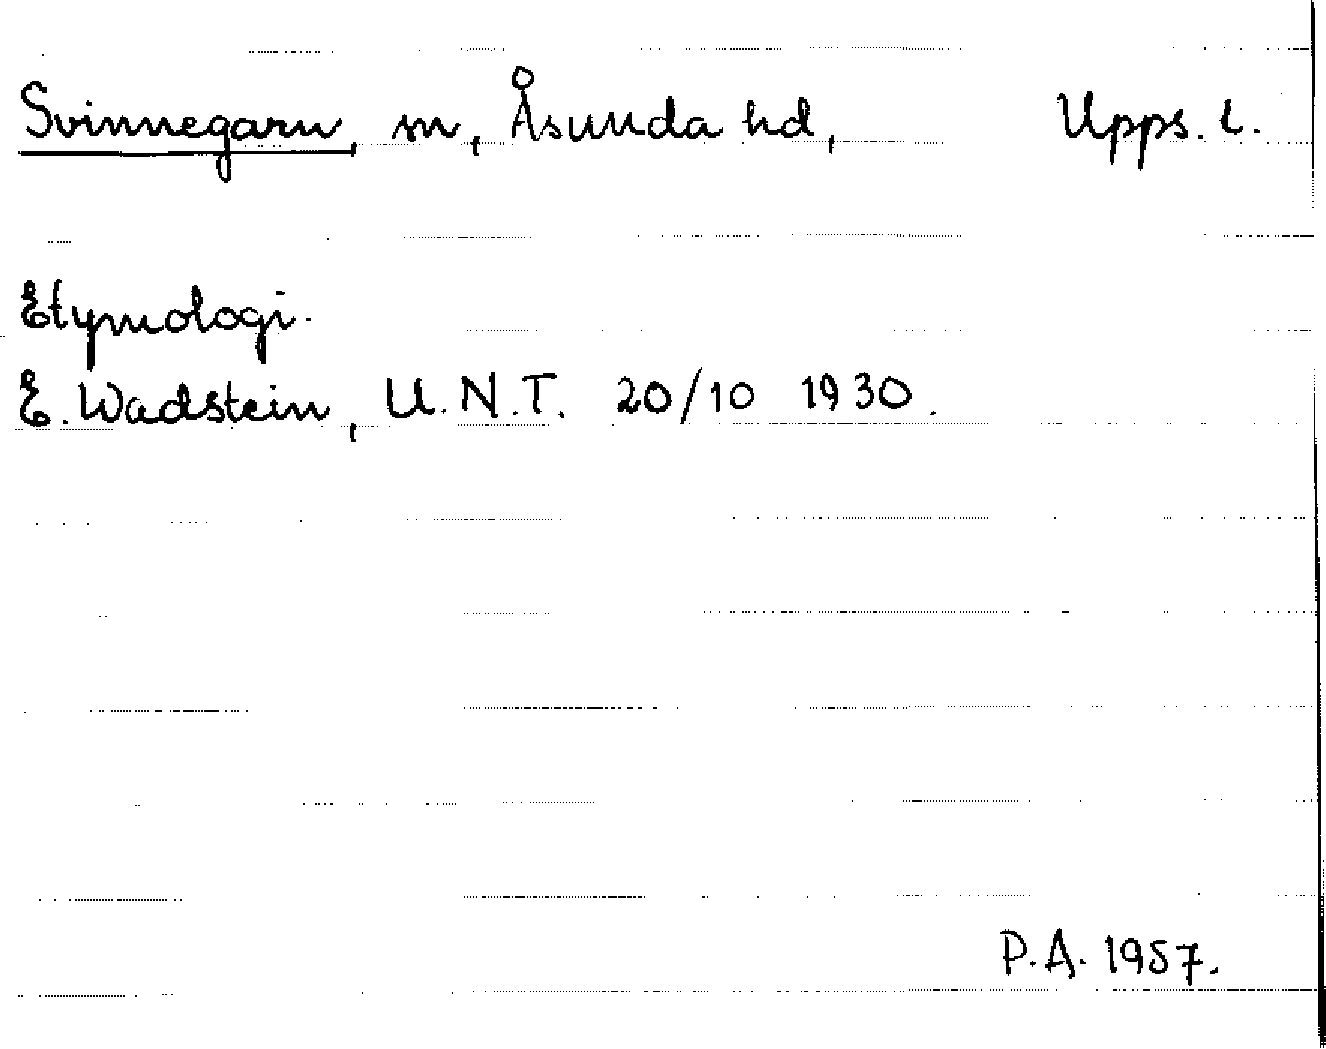 Svinnegarn, sn, Åsunda hd, Upps. l.
Etymologi.
E. Wadstein, U.N.T. 20/10 1930.
P.A. 1957.